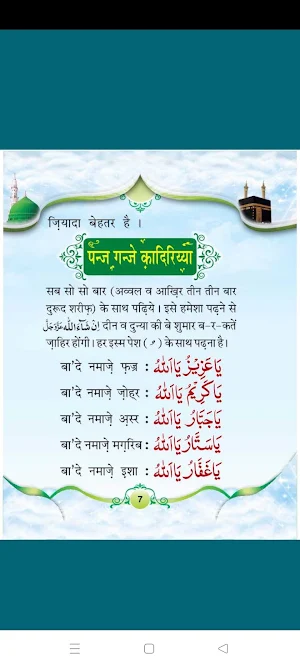 ज़ियादा बेहतर है ।
पन्ज गन्जे क़ादिरिय्या
सब सो सो बार (अव्वल व आख़िर तीन तीन बार
दुरूद शरीफ़) के साथ पढ़िये । इसे हमेशा पढ़ने से
اِنْ شَآءَاللّٰه عَزَّوَجَلَّ दीन व दुन्या की बे शुमार ब-र-कतें
ज़ाहिर होंगी । हर इस्म पेश ( ُ ) के साथ पढ़ना है ।
बा'दे नमाजे़ फ़ज्र : يَا عَزِيْزُ يَا اَللّٰهُ
बा'दे नमाजे़ ज़ोहर : يَا كَرِيْمُ يَا اَللّٰهُ
बा'दे नमाजे़ अ़स्र : يَا جَبَّارُ يَا اَللّٰهُ
बा'दे नमाजे़ मग़रिब : يَا سَتَّارُ يَا اَللّٰهُ
बा'दे नमाजे़ इशा : يَا غَفَّارُ يَا اَللّٰهُ
7